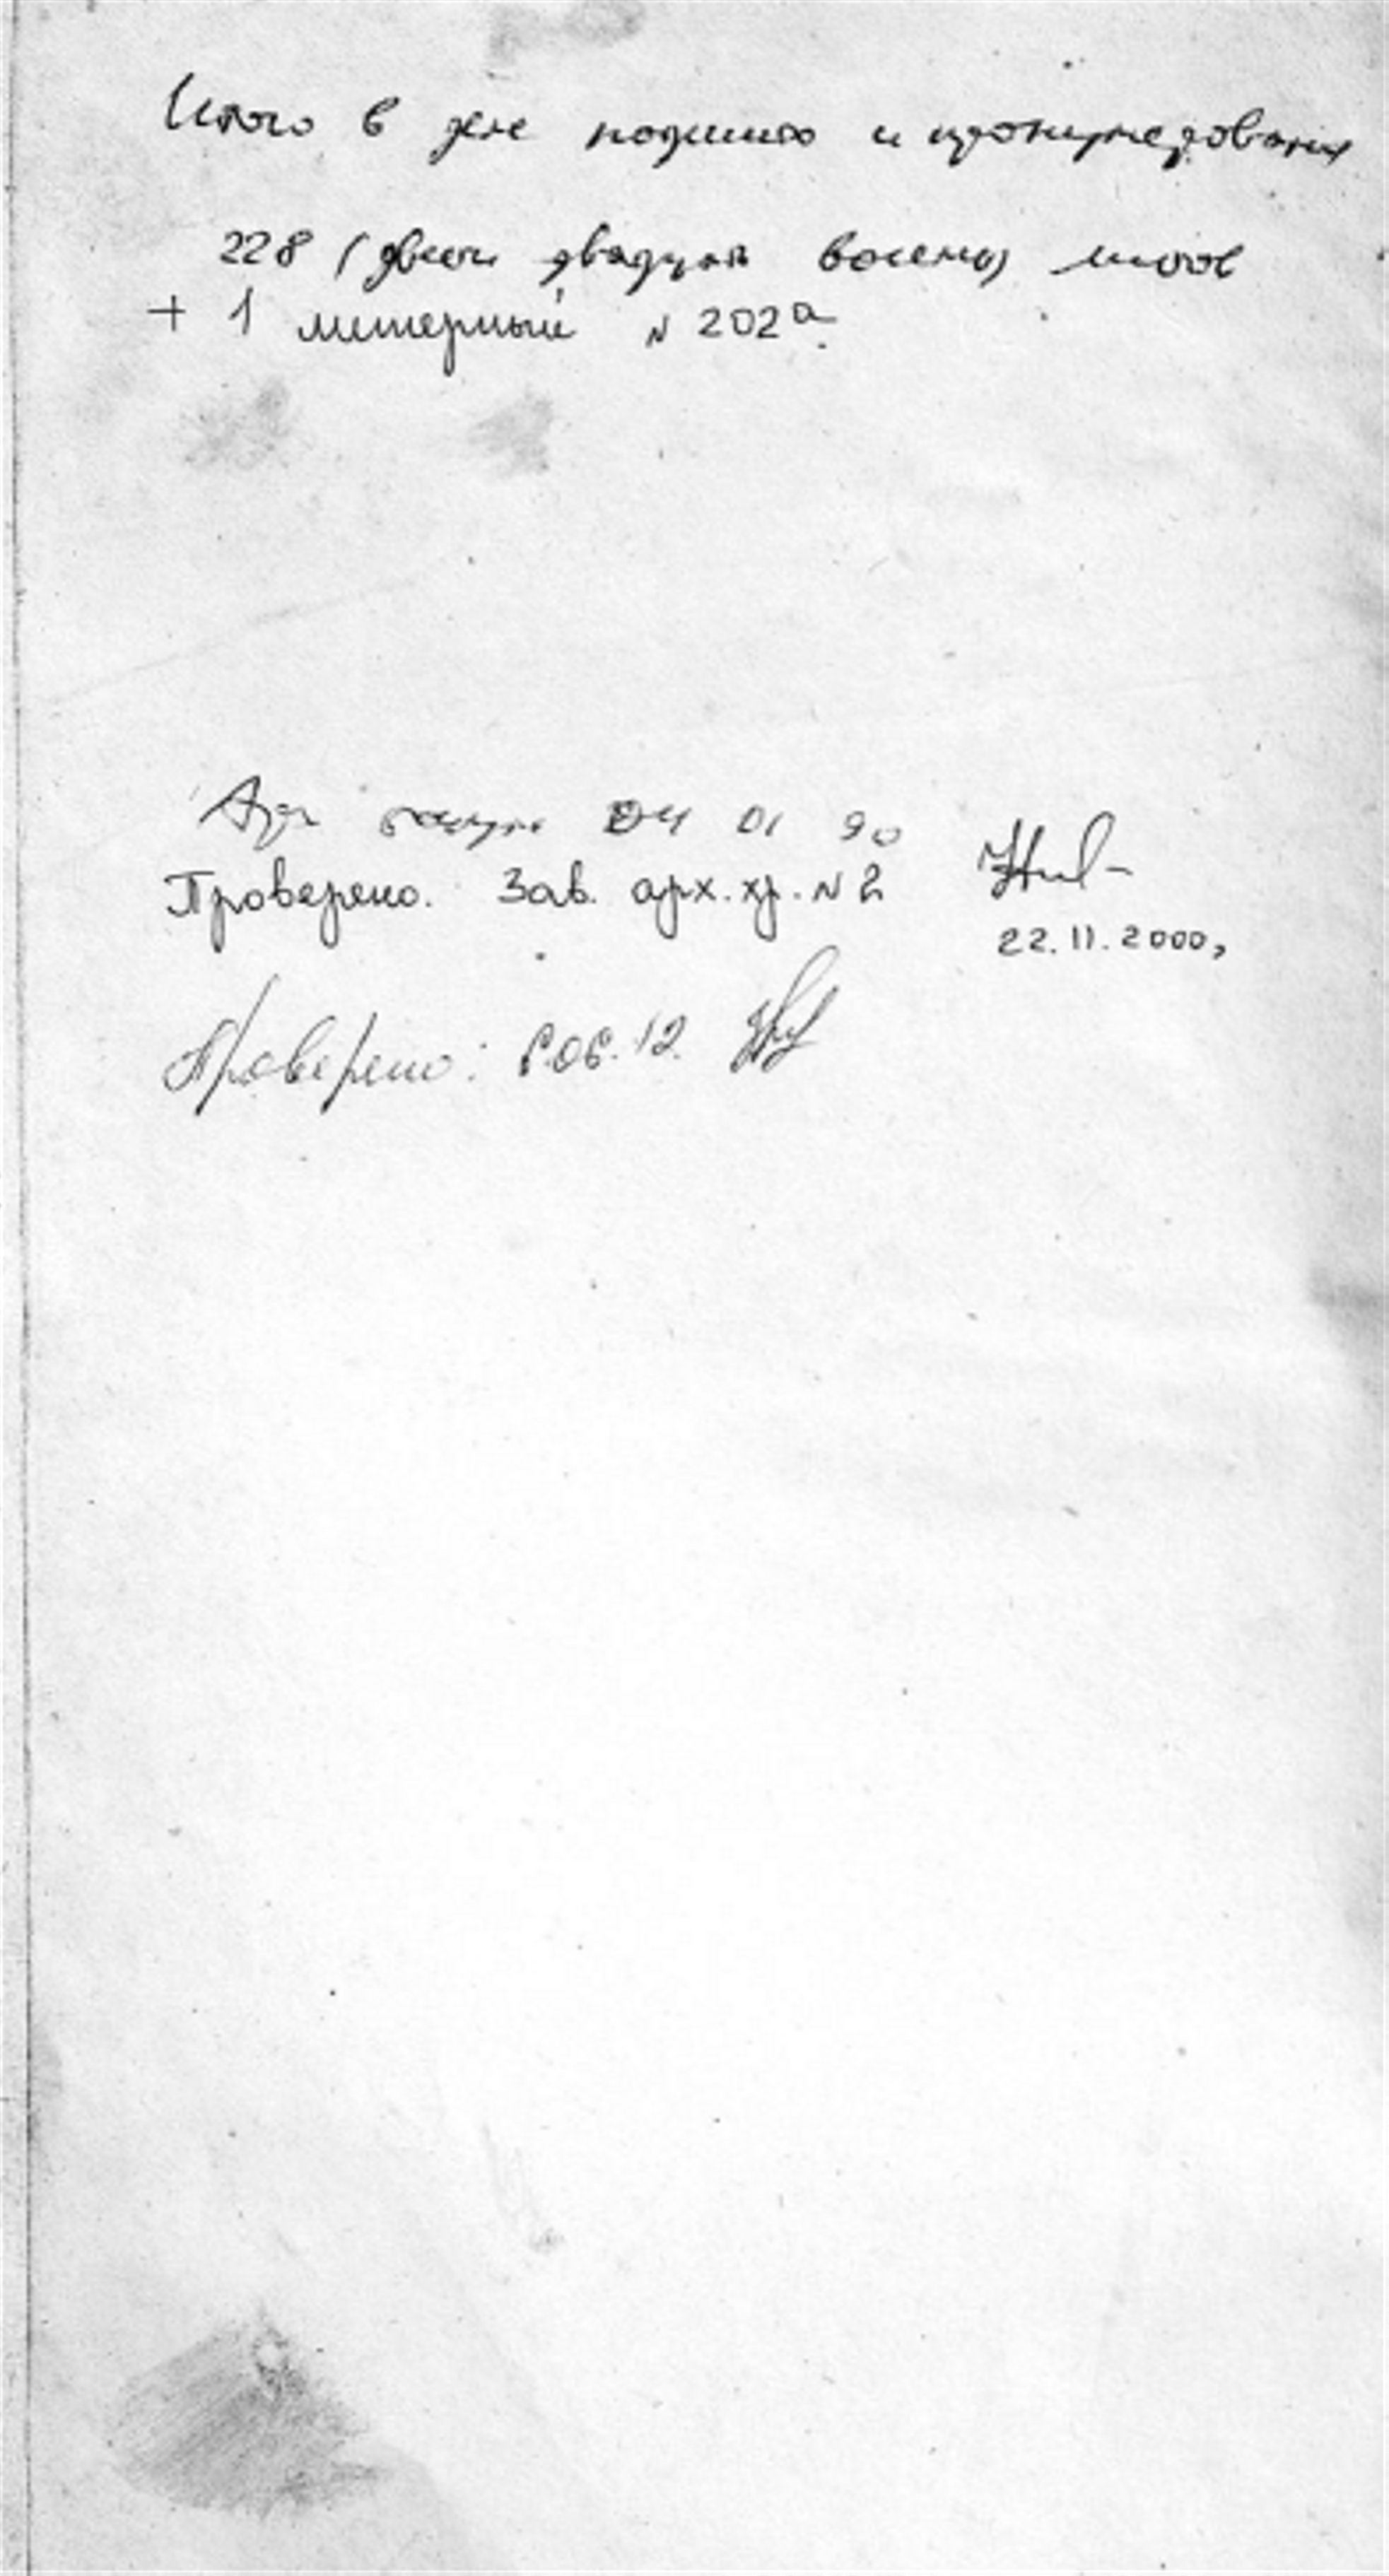 Итого в деле подшито и пронумеровано
228 (двести двадцать восемь) листов
+ 1 литерный № 202а
04 01 90
Проверено. Зав. арх. хр. № 2
22.11.2000,
Проверено: 8.08.12.